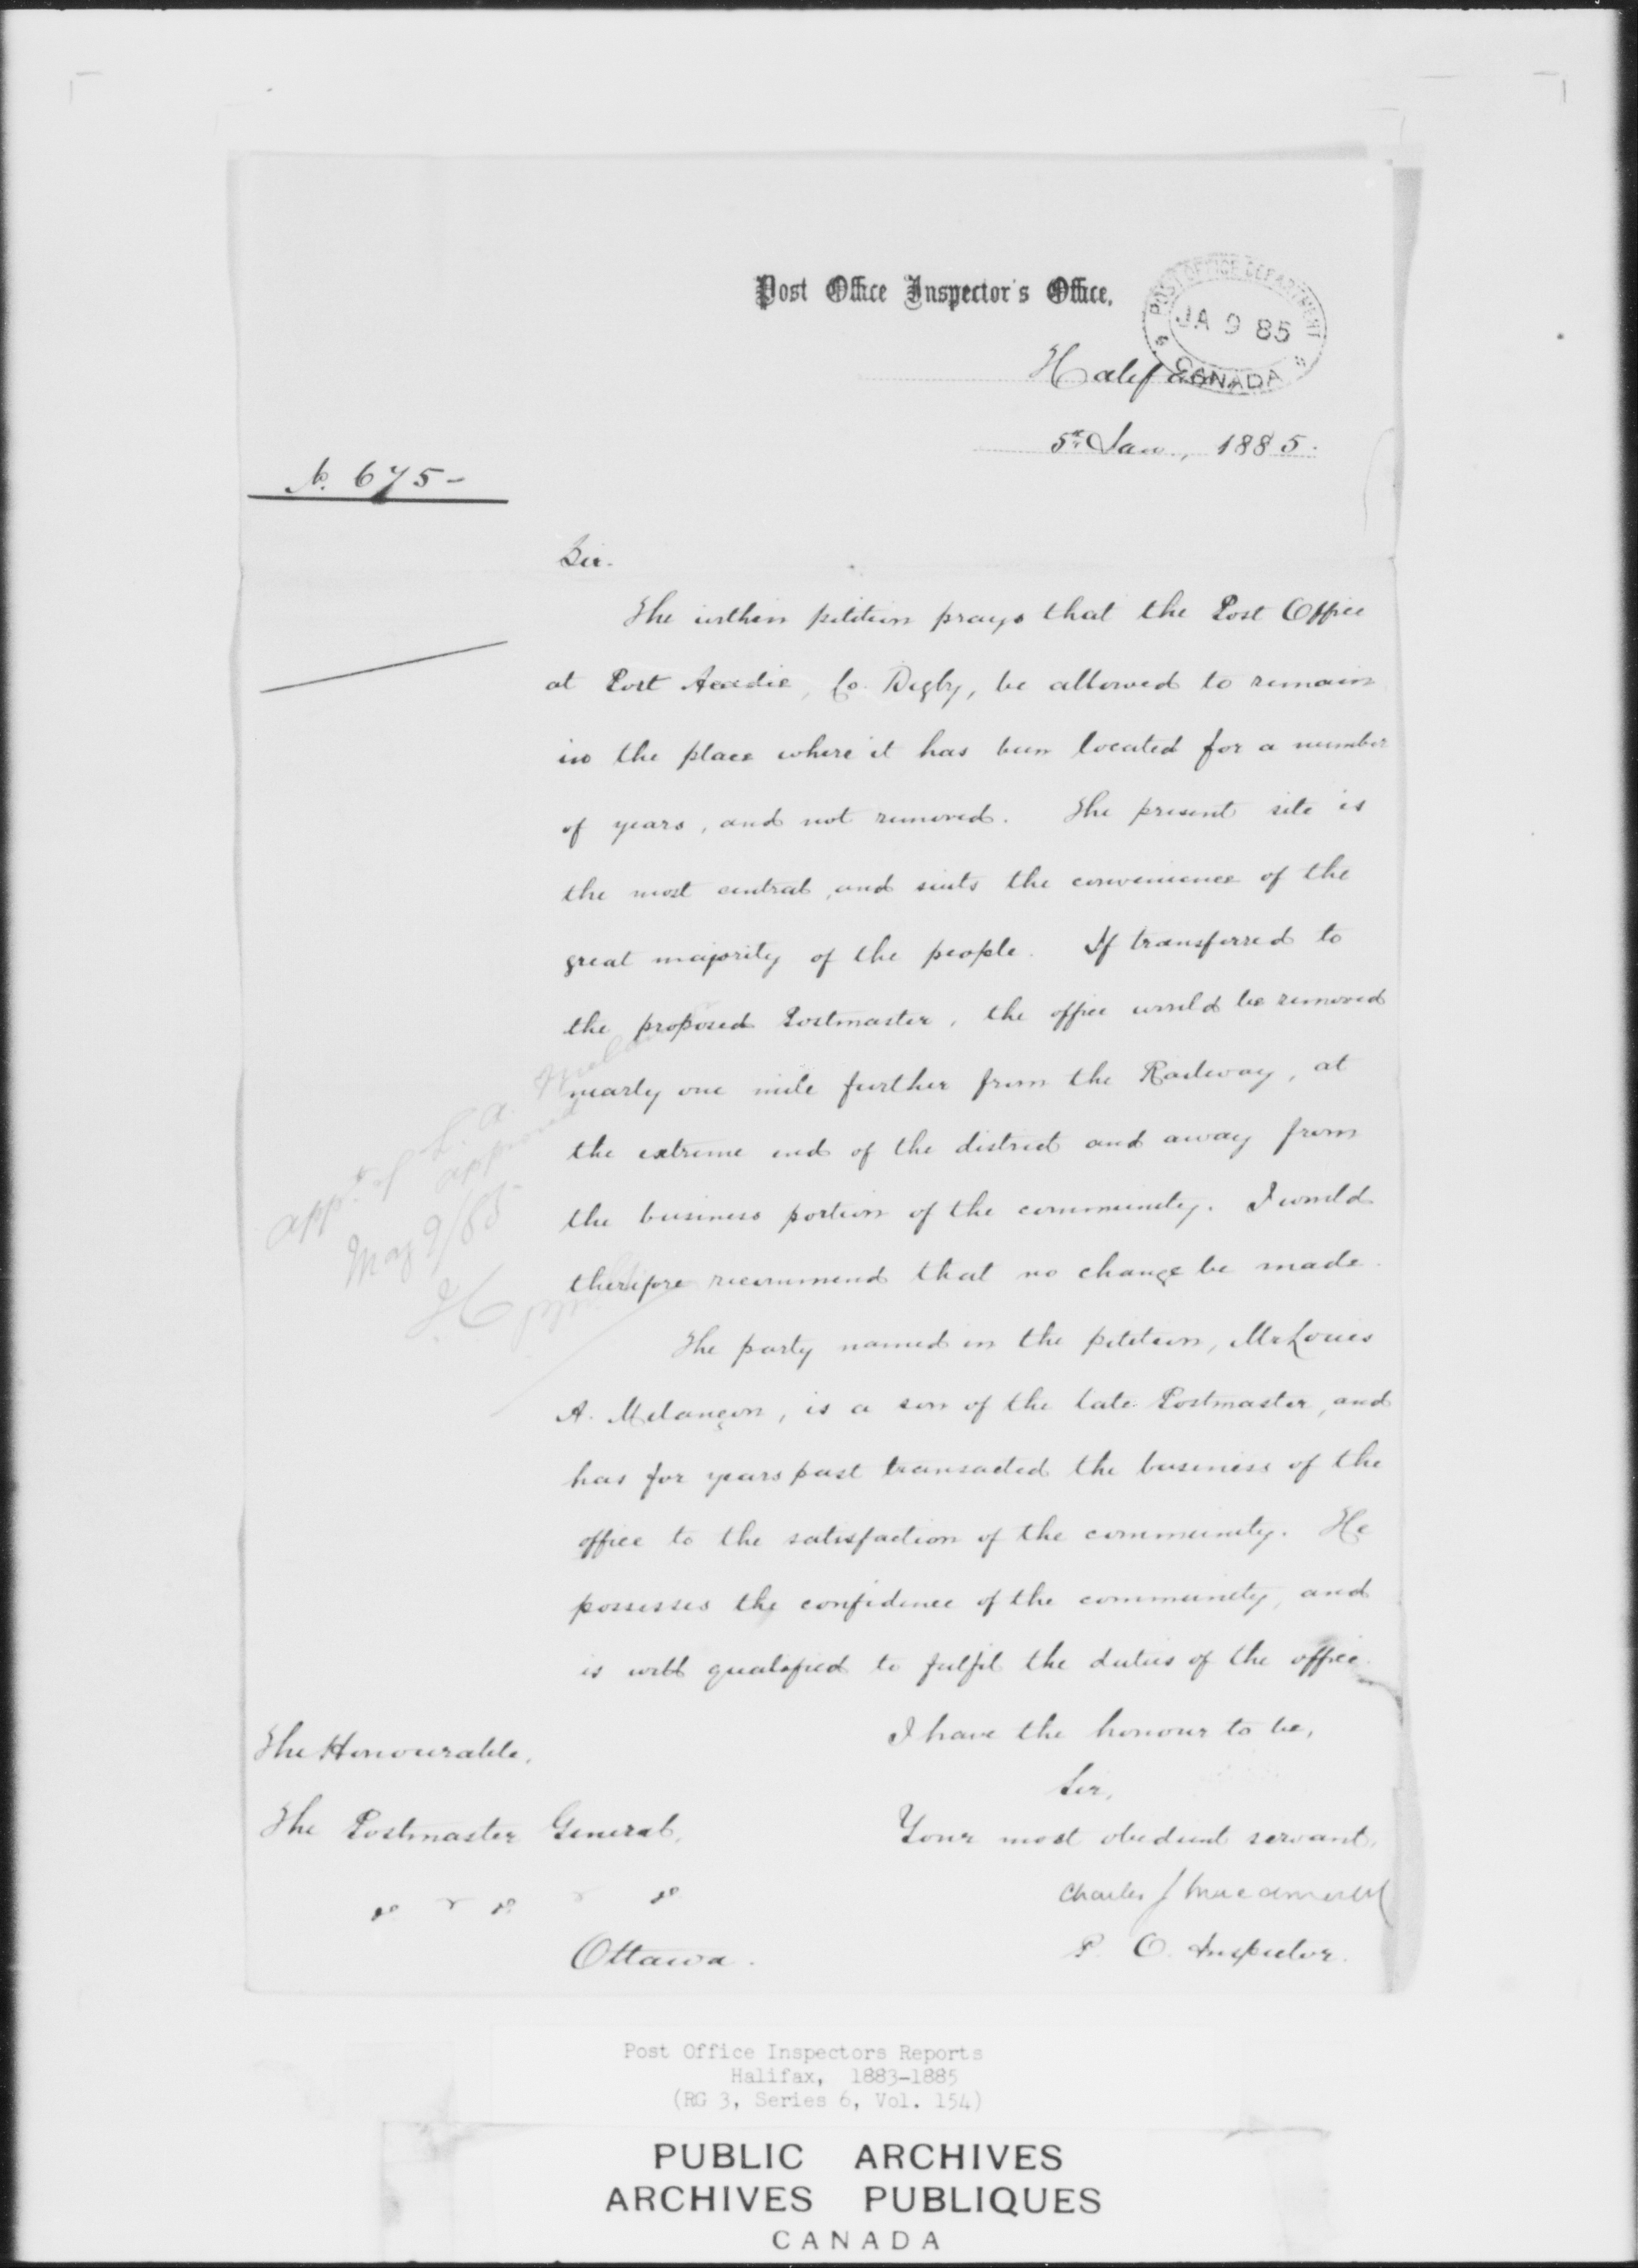 Post Office Inspector's Office,
POST OFFICE DEPARTMENT
JA 9 85
CANADA
Halifax,
5th Jan., 1885.
No. 675-
Sir.
The within petition prays that the Post Office
at Port Acadie, Co. Digby, be allowed to remain
in the place where it has been located for a number
of years, and not removed. The present site is
the most central, and suits the convenience of the
great majority of the people. If transferred to
the proposed Postmaster, the office would be removed
nearly one mile further from the Railway, at
the extreme end of the district and away from
the business portion of the community. I would
therefore recommend that no change be made.
The party named in the petition, Mr Louis
A. Melançon, is a son of the late Postmaster, and
has for years past transacted the business of the
office to the satisfaction of the community. He
possesses the confidence of the community, and
is well qualified to fulfil the duties of the office.
appt of L. A. Melan
approved
May 9/85
I have the honour to be,
Sir,
Your most obedient servant,
Charles J Macdonald
P. O. Inspector.
The Honourable,
The Postmaster General,
Ottawa.
Post Office Inspectors Reports
Halifax, 1883-1885
(RG 3, Series 6, Vol. 154)
PUBLIC ARCHIVES
ARCHIVES PUBLIQUES
CANADA